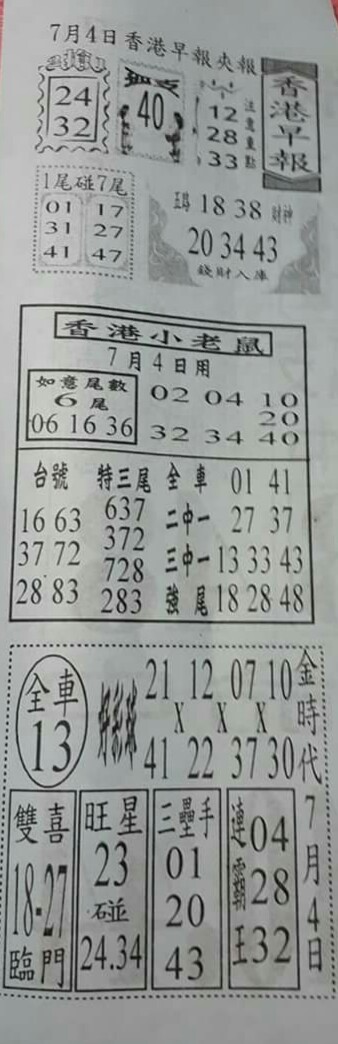 7月4日香港早報夾報
24
32
40
12
28
33
注意重點
香港早報
1尾碰7尾
01 17
31 27
41 47
18 38 財神
20 34 43
錢財入庫
香港小老鼠
7月4日用
如意尾數
6尾
06 16 36
02 04 10
20
32 34 40
台號 特三尾 全車 01 41
16 63 637 二中一 27 37
37 72 372 三中一 13 33 43
28 83 728 強尾 18 28 48
283
全車
13
好彩球
21 12 07 10
X X X
41 22 37 30
金時代
7月4日
雙喜
18-27
臨門
旺星
23
碰
24.34
三壘手
01
20
43
連霸王
04
28
32